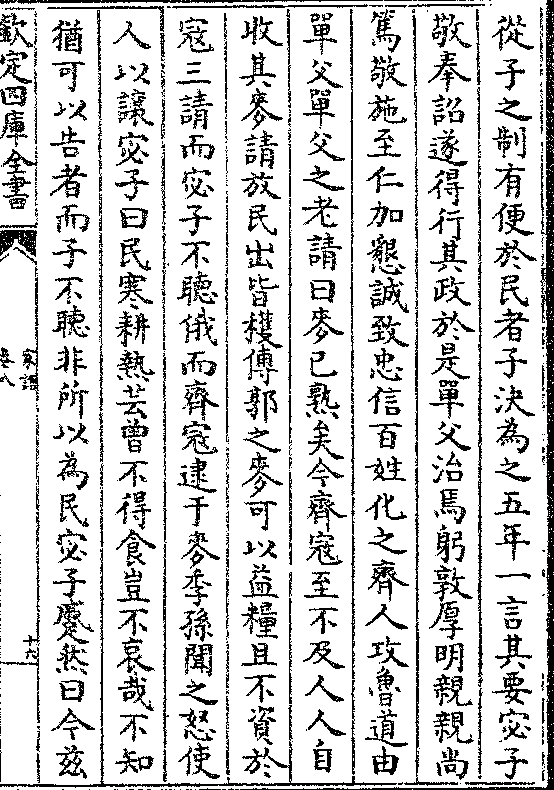 從子之制有便於民者子決為之五年一言其要宓子
敬奉詔遂得行其政於是單父治焉躬敦厚明親親尚
篤敬施至仁加懇誠致忠信百姓化之齊人攻魯道由
單父單父之老請曰麥已熟矣今齊冦至不及人人自
收其麥請放民出皆穫傅郭之麥可以益糧且不資於
冦三請而宓子不聽俄而齊冦逮于麥季孫聞之怒使
人以讓宓子曰民寒耕熱芸曾不得食豈不哀哉不知
猶可以告者而子不聽非所以為民宓子蹙然曰今兹
欽定四庫全書
家語
卷八
十六